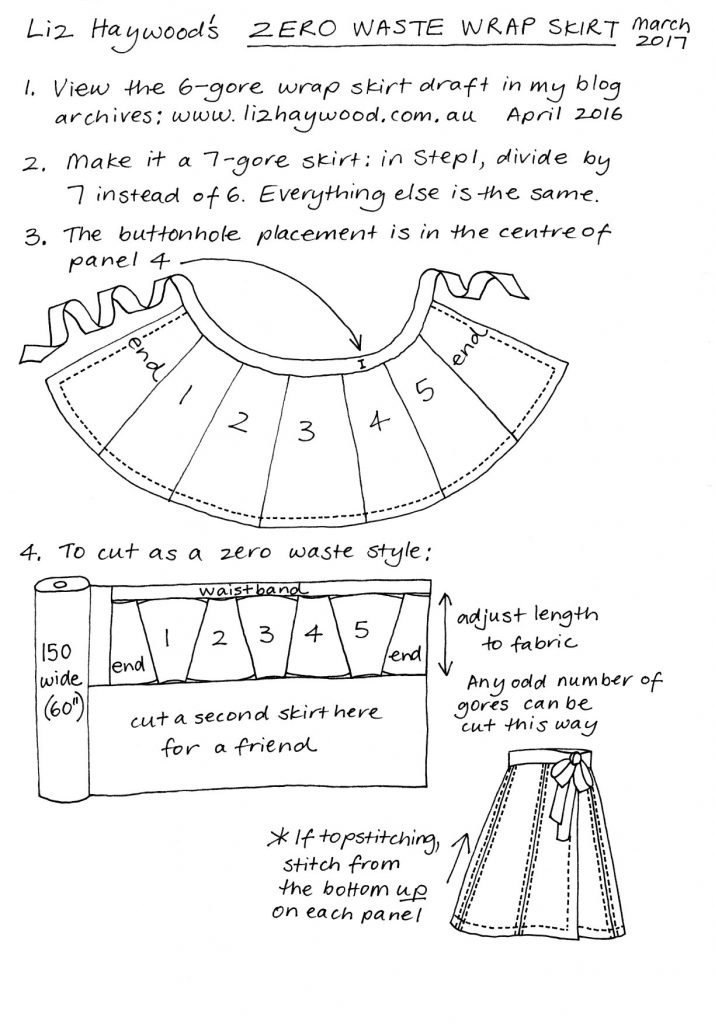 Liz Haywood's ZERO WASTE WRAP SKIRT March 2017
1. View the 6-gore wrap skirt draft in my blog
archives: www.lizhaywood.com.au April 2016
2. Make it a 7-gore skirt: in Step1, divide by
7 instead of 6. Everything else is the same.
3. The buttonhole placement is in the centre of
panel 4
end
1
2
3
4
5
end
I
4. To cut as a zero waste style:
waistband
150
wide
(60")
end
1
2
3
4
5
end
cut a second skirt here
for a friend
adjust length
to fabric
Any odd number of
gores can be
cut this way
* If topstitching,
stitch from
the bottom up
on each panel